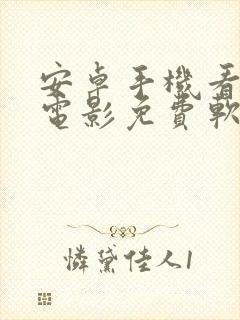 安卓手機看
電影免費軟
憐黛佳人1